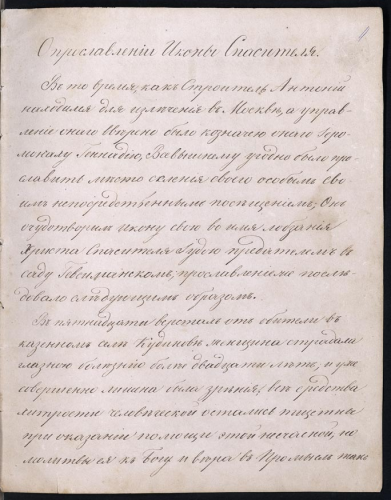 О прославленіи Иконы Спасителя.
Въ то время, какъ Строитель Антоній
находился для излѣченія въ Москвѣ, а управ-
леніе было казначею онаго Іеро-
монаху Геннадію, Всевышнему угодно было про-
славить мѣсто селенія своего особымъ сво-
имъ непосредственнымъ посѣщеніемъ; Онъ
очудотворилъ икону свою во имя лобзанія
Христа Спасителя Іудою предателемъ въ
саду Геѳсиманскомъ; прославленіе послѣ-
довало слѣдующимъ образомъ.
Въ пятнадцати верстахъ отъ обители въ
казенномъ селѣ женщина страдала
глазною болѣзнію болѣе двадцати лѣтъ, и уже
совершенно лишена была зрѣнія; всѣ средства
хитрости человѣческой остались тщетны
при оказаніи помощи этой несчастной, но
молитвы ея къ Богу и вѣра въ Промыслъ